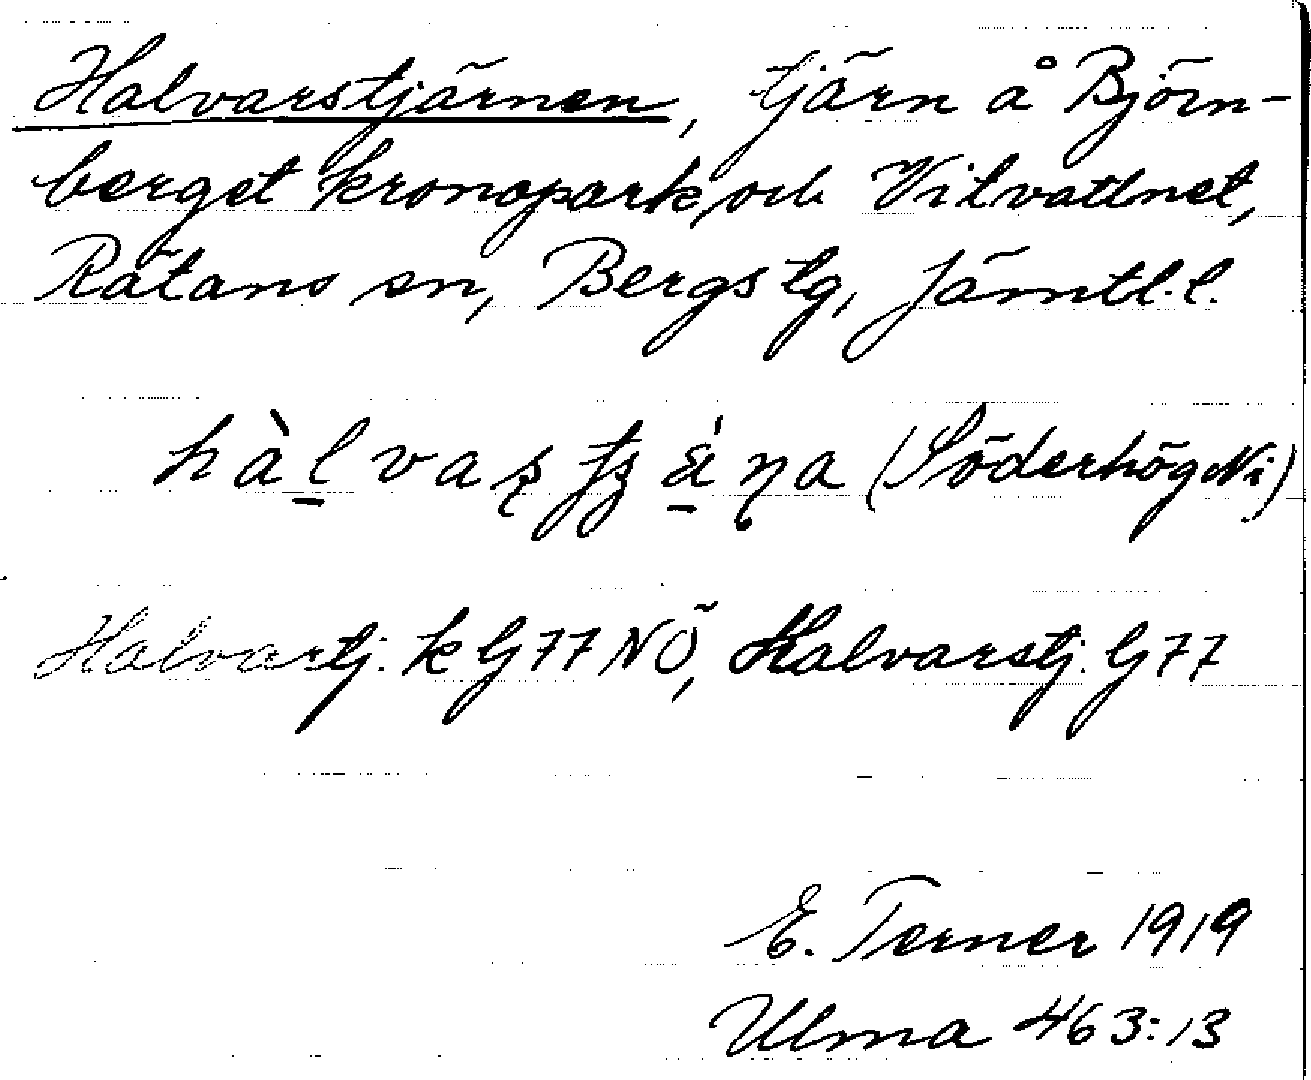 Halvarstjärnen, tjärn å Björn-
berget kronopark och Vitvattnet,
Rätans sn, Bergs tg, Jämtl.l.
(Söderhög Ni)
Halvartj. k G77 NÖ, Halvarstj. G77
E. Terner 1919
Ulma 463:13